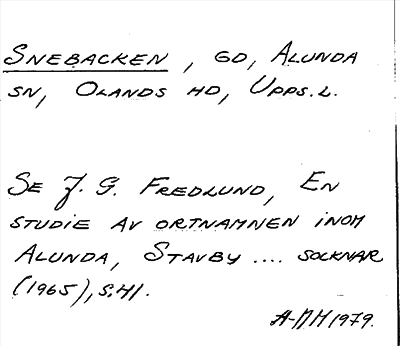 SNEBACKEN, GD, ALUNDA
SN, OLANDS HD, UPPS.L.
SE J. G. FREDLUND, EN
STUDIE AV ORTNAMNEN INOM
ALUNDA, STAVBY .... SOCKNAR
(1965), S.41.
A-MH 1979.